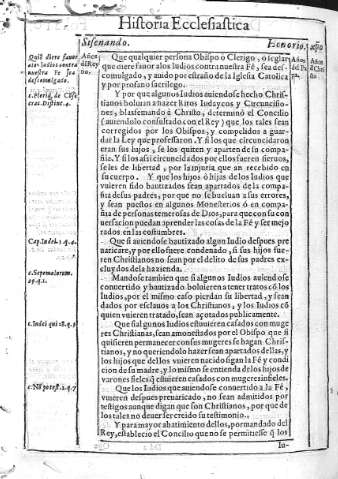 Historia Ecclesiastica
Sisenando.
Honorio.
Años
del Rey
Que qualquier persona Obispo o Clerigo, o seglar
que diere fauor a los Iudios contra nuestra Fè, sea des-
comulgado, y auido por estraño de la Iglesia Catolica
y por profano sacrilego.
Y por que algunos Iudios auiendose hecho Christ-
tianos boluian a hazer Ritos Iudaycos y Circuncisio-
nes, blasfemando à Christo, determinò el Concilio
(auiendolo consultado con el Rey) que los tales sean
corregidos por los Obispos, y compelidos a guar-
dar la Ley que professaron. Y si los que circuncidaron
eran sus hijos, se los quiten y aparten de su compa-
ñia. Y si los assi circuncidados por ellos fueren sieruos,
se les de libertad, por la injuria que an recebido en
su cuerpo. Y que los hijos ò hijas de los Iudios que
vuieren sido bautizados sean apartados de la compa-
ñia de sus padres, por que no se bueluan a sus errores,
y sean puestos en algunos Monesterios ò en compa-
ñia de personas temerosas de Dios, para que con su con
uersacion puedan aprender las cosas de la Fè y ser mejo
rados en las costumbres.
Cap. Iudei. 1. q. 4.
Que si auiendose bautizado algun Iudio despues pre
uaricare, y por ello fuere condenado, si sus hijos fue-
ren Christianos no sean por el delito de sus padres ex-
cluydos de la hazienda.
Mandose tambien que si algunos Iudios auiendose
conuertido y bautizado boluieren a tener tratos cõ los
Iudios, por el mismo caso pierdan su libertad, y sean
dados por esclauos a los Christianos, y los Iudios cõ
quien vuieren tratado, sean açotados publicamente.
c. Iudei qui 28. q. 1
Que si algunos Iudios estuuieren casados con muge
res Christianas, sean amonestados por el Obispo que si
quisieren permanecer con sus mugeres se hagan Chris-
tianos, y no queriendolo hazer sean apartados dellas, y
los hijos que dellos vuieren nacido sigan la Fè y condi
cion de su madre, y lo mismo se entienda de los hijos de
varones fieles q̃ estuuieren casados con mugeres infieles.
Que los Iudios que auiendose conuertido a la Fè,
vuieren despues preuaricado, no sean admitidos por
testigos aunque digan que son Christianos, por que de
los tales no deue ser creido su testimonio.
Y para mayor abatimiento dellos, por mandado del
Rey, establecio el Concilio que no se permitiesse q̃ los
Iu-